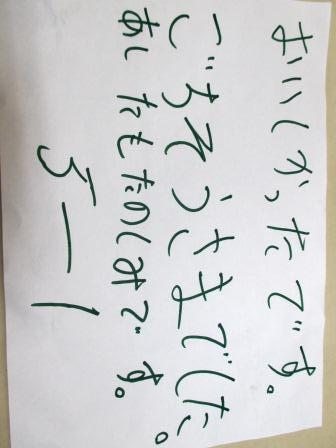 おいしかったです。
ごちそうさまでした。
あしたもたのしみです。
5－1